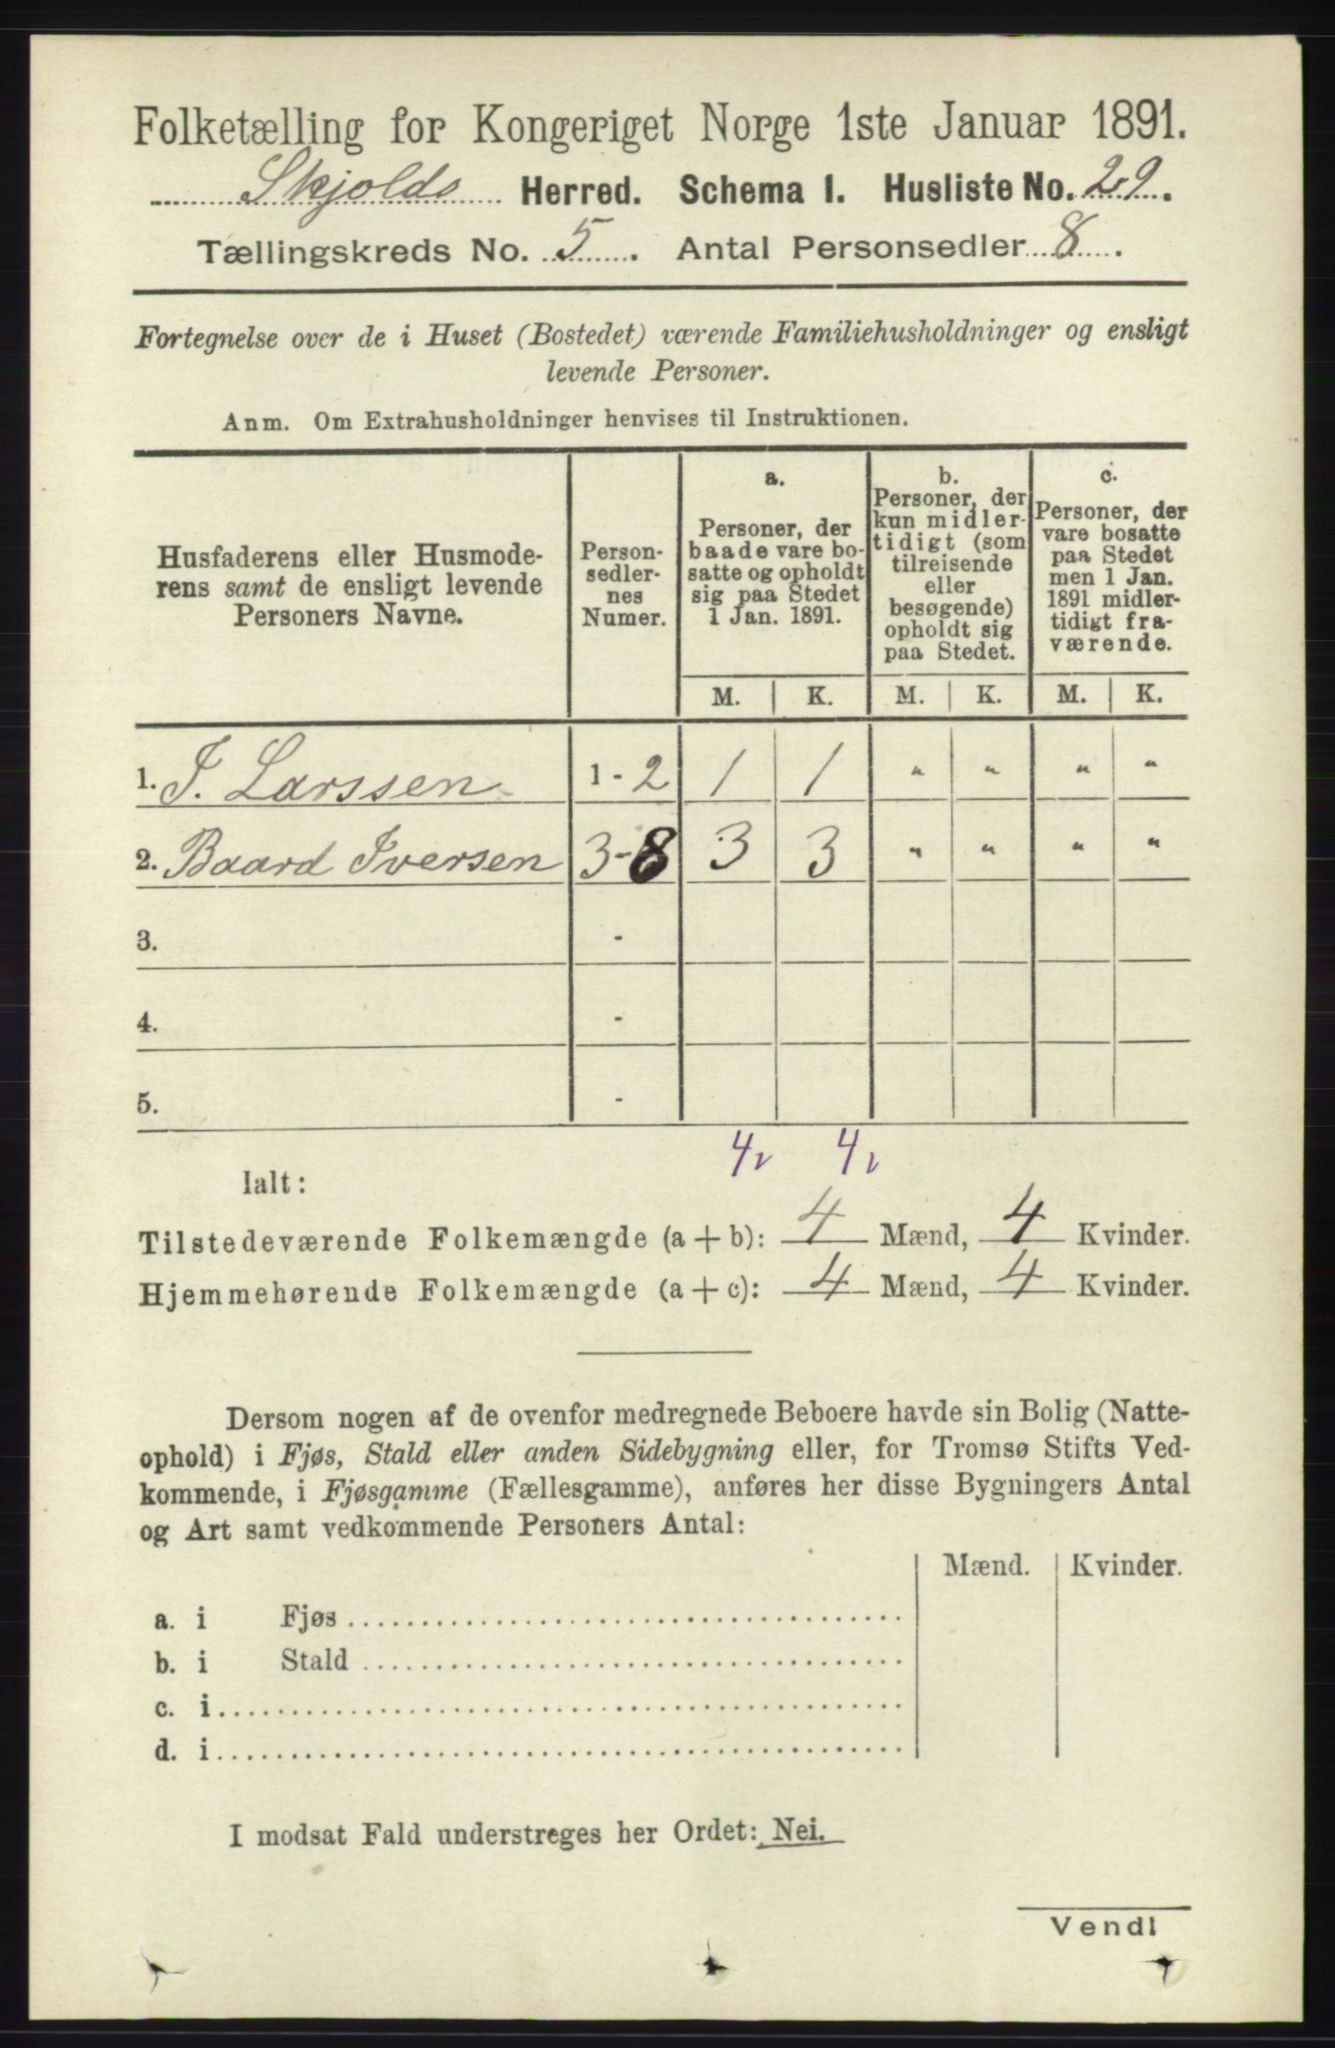 Folketælling for Kongeriget Norge 1ste Januar 1891.
Skjolds Herred. Schema 1. Husliste No. 29.
Tællingskreds No. 5. Antal Personsedler 8.
Fortegnelse over de i Huset (Bostedet) værende Familiehusholdninger og ensligt
levende Personer.
Anm. Om Extrahusholdninger henvises til Instruktionen.
Husfaderens eller Husmode-
rens samt de ensligt levende
Personers Navne.
Person-
sedler-
nes
Numer.
a.
Personer, der
baade vare bo-
satte og opholdt
sig paa Stedet
1 Jan. 1891.
b.
Personer, der
kun midler-
tidigt (som
tilreisende
eller
besøgende)
opholdt sig
paa Stedet.
c.
Personer, der
vare bosatte
paa Stedet
men 1 Jan.
1891 midler-
tidigt fra-
værende.
M. K. M. K. M. K.
1. J. Larssen 1 - 2 1 1 " " " "
2. Baard Iversen 3-8 3 3 " " " "
3. -
4. -
5. -
4 v 4 v
Ialt:
Tilstedeværende Folkemængde (a + b): 4 Mænd, 4 Kvinder.
Hjemmehørende Folkemængde (a + c): 4 Mænd, 4 Kvinder.
Dersom nogen af de ovenfor medregnede Beboere havde sin Bolig (Natte-
ophold) i Fjøs, Stald eller anden Sidebygning eller, for Tromsø Stifts Ved-
kommende, i Fjøsgamme (Fællesgamme), anføres her disse Bygningers Antal
og Art samt vedkommende Personers Antal:
Mænd. Kvinder.
a. i Fjøs
b. i Stald
c. i
d. i
I modsat Fald understreges her Ordet: Nei.
Vend!